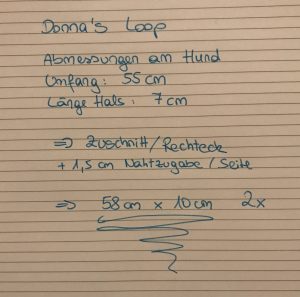 Donna's Loop
Abmessungen am Hund
Umfang: 55 cm
Länge Hals: 7 cm
⇒ Zuschnitt/Rechteck
+ 1,5 cm Nahtzugabe/Seite
⇒ 58 cm x 10 cm 2x